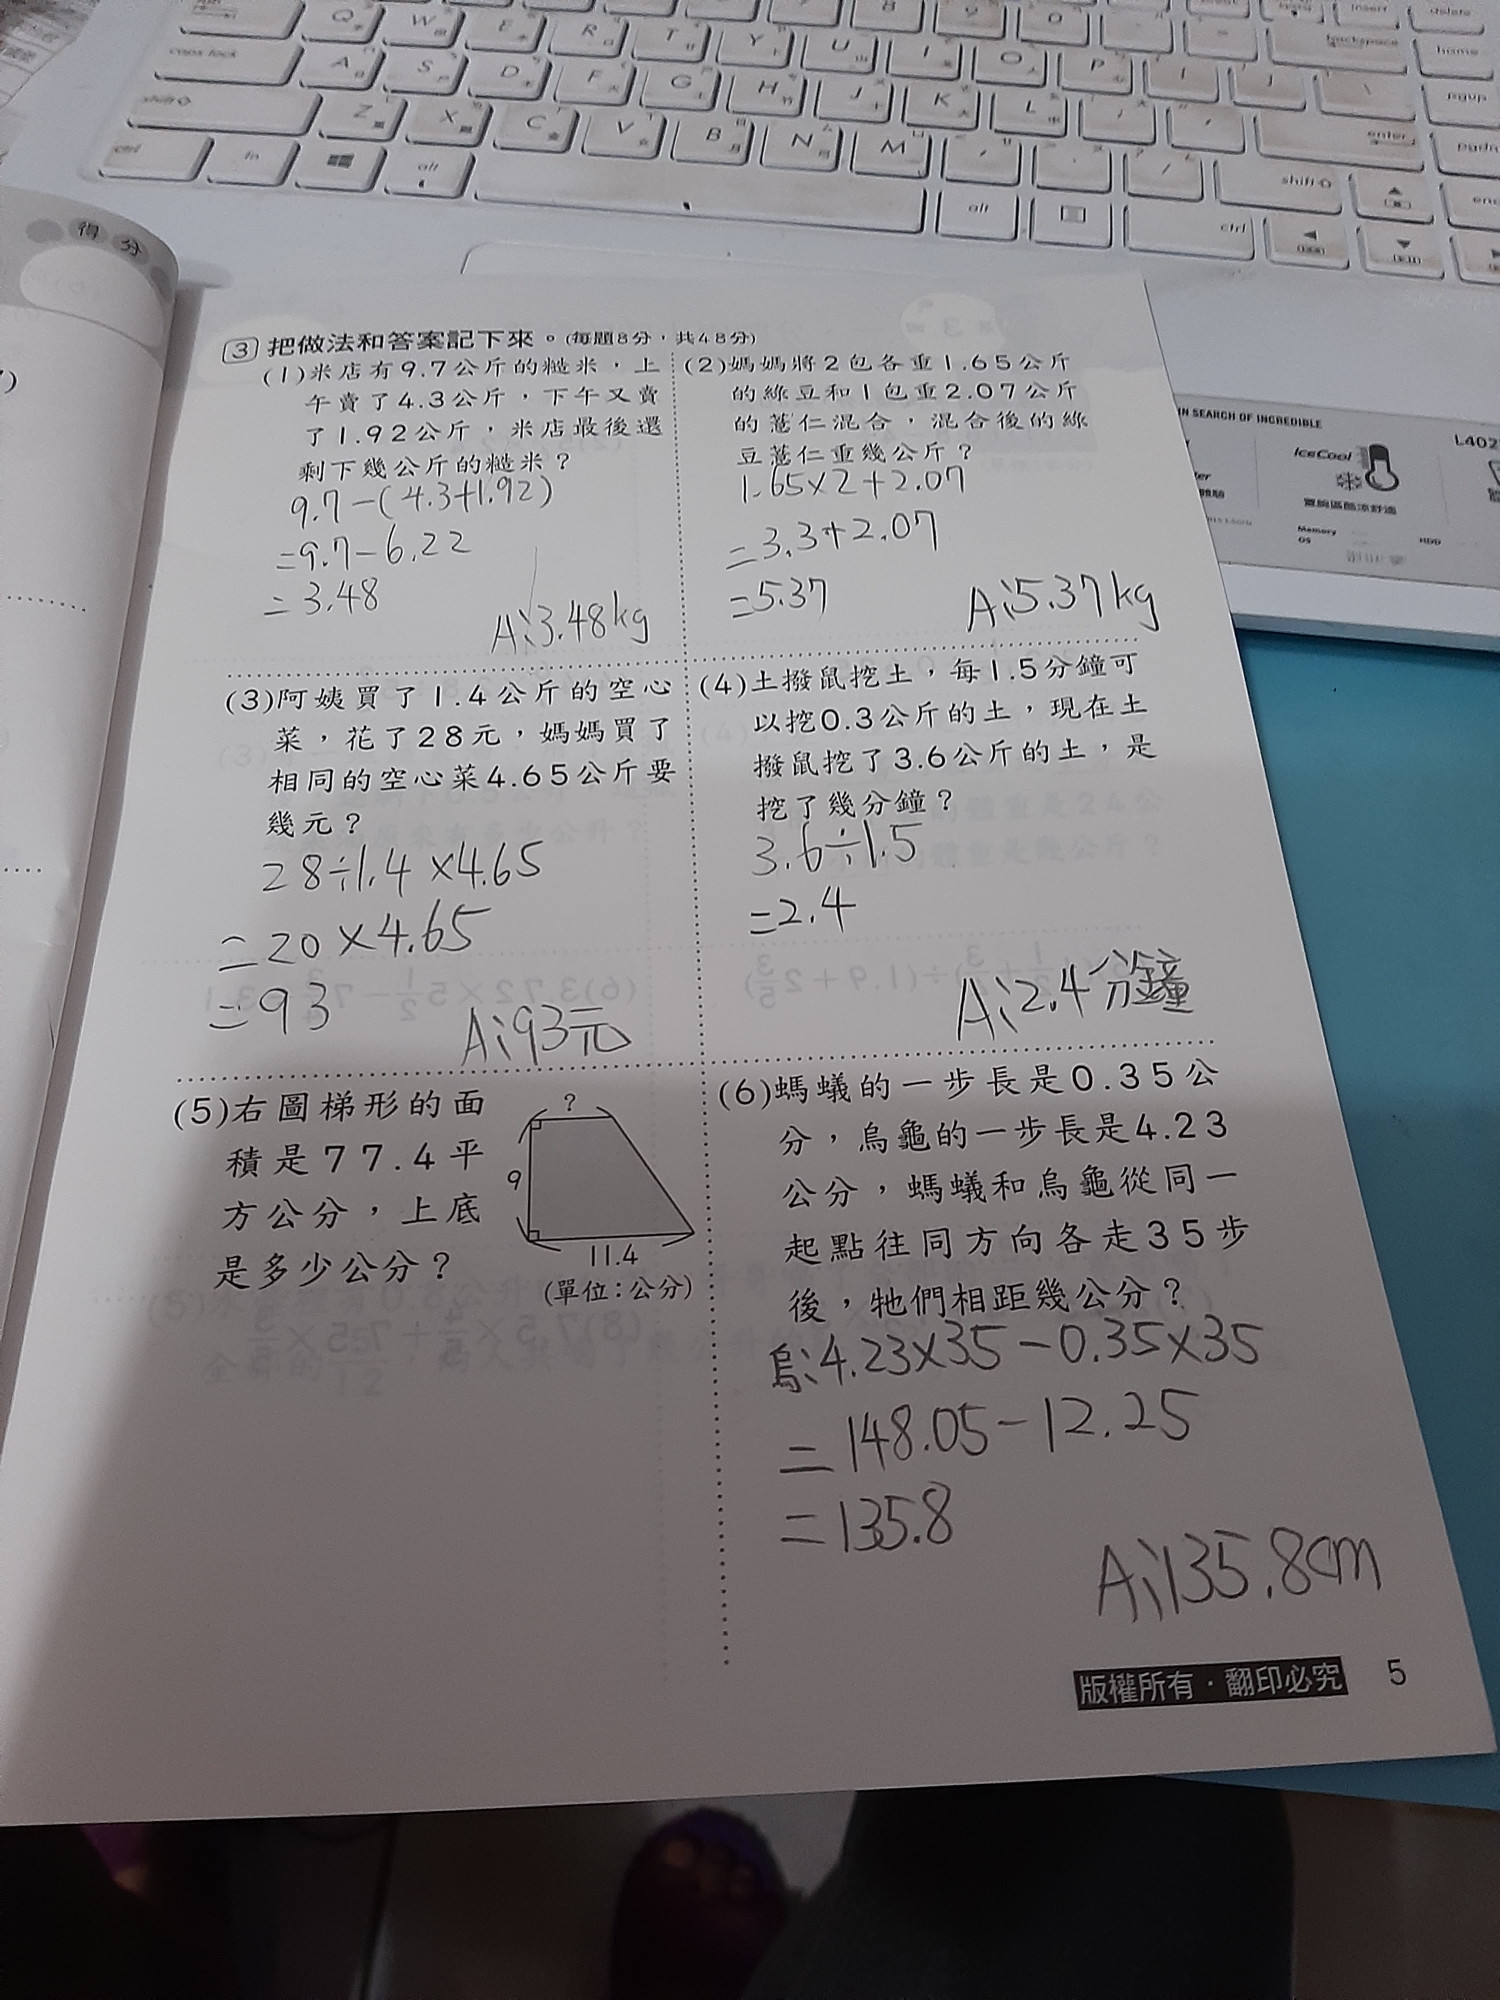 得分
3 把做法和答案記下來。(每題8分，共48分)
(1)米店有9.7公斤的糙米，上
午賣了4.3公斤，下午又賣
了1.92公斤，米店最後還
剩下幾公斤的糙米？
9.7-(4.3+1.92)
=9.7-6.22
=3.48
A:3.48kg
(2)媽媽將2包各重1.65公斤
的綠豆和1包重2.07公斤
的薏仁混合，混合後的綠
豆薏仁重幾公斤？
1.65×2+2.07
=3.3+2.07
=5.37
A:5.37kg
(3)阿姨買了1.4公斤的空心
菜，花了28元，媽媽買了
相同的空心菜4.65公斤要
幾元？
28÷1.4×4.65
=20×4.65
=93
A:93元
(4)土撥鼠挖土，每1.5分鐘可
以挖0.3公斤的土，現在土
撥鼠挖了3.6公斤的土，是
挖了幾分鐘？
3.6÷1.5
=2.4
A:2.4分鐘
(5)右圖梯形的面
積是77.4平
方公分，上底
是多少公分？
?
9
11.4
(單位：公分)
(6)螞蟻的一步長是0.35公
分，烏龜的一步長是4.23
公分，螞蟻和烏龜從同一
起點往同方向各走35步
後，牠們相距幾公分？
烏:4.23×35-0.35×35
=148.05-12.25
=135.8
A:135.8cm
版權所有·翻印必究 5
IN SEARCH OF INCREDIBLE
L402
IceCool
Memory
OS
HDD
Q W E R T Y U I O P
caps lock A S D F G H J K L
shift Z X C V B N M
enter
ctrl fn alt
alt ctrl
shift
backspace
home
pgup
pgdn
insert
delete